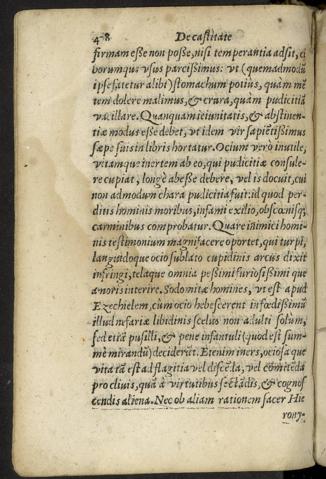 48 De castitate
firmam esse non posse, nisi temperantia adsit, ci
borumque vsus parcissimus: vt (quemadmodũ
ipse fatetur alibi) stomachum potius, quàm mẽ
tem dolere malimus, & crura, quàm pudicitiã
vacillare. Quanquam ieiunitatis, & abstinen-
tiæ modus esse debet, vt idem vir sapiẽtissimus
sæpe suis in libris hortatur. Ocium verò inutile,
vitamque inertem ab eo, qui pudicitiæ consule-
re cupiat, longè abesse debere, vel is docuit, cui
non admodum chara pudicitia fuit: id quod per-
diti hominis moribus, infami exilio, obscœnisq;
carminibus comprobatur. Quare inimici homi-
nis testimonium magnifacere oportet, qui turpi,
languidoque ocio sublato cupidinis arcus dixit
infringi, telaque omnia pessimi furiosissimi que
amoris interire. Sodomitæ homines, vt est apud
Ezechielem, cum ocio hebescerent in fœdissimũ
illud nefariæ libidinis scelus non adulti solùm,
sed etiã pusilli, & pene infantuli (quod est sum-
mè mirandũ) deciderũt. Etenim iners, ociosaque
vita tã est ad flagitia vel discẽda, vel cõmittẽda
procliuis, quã à virtutibus sectãdis, & cognos
cendis aliena. Nec ob aliam rationem sacer Hie
rony-